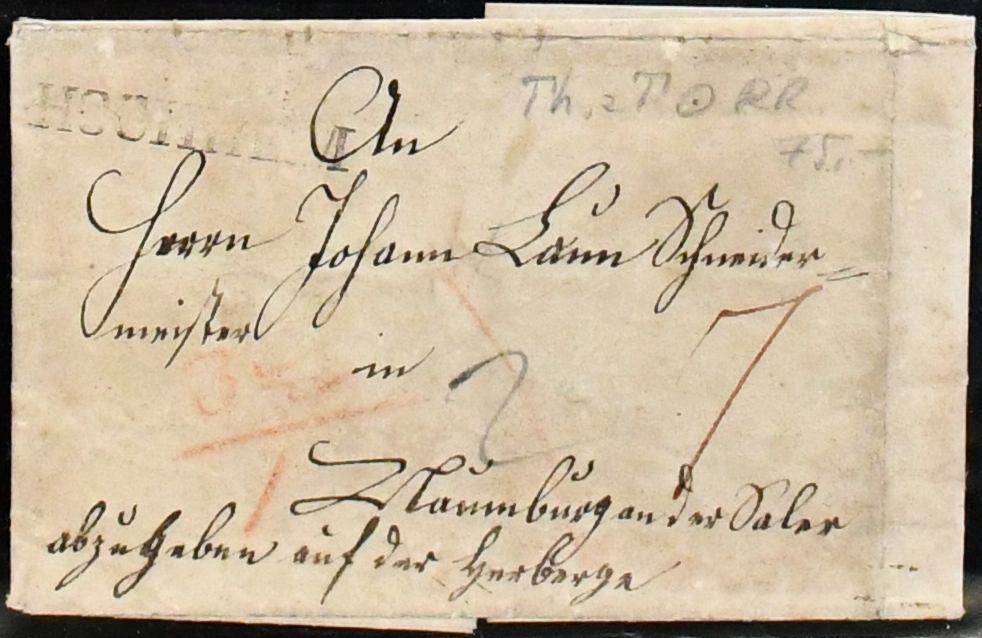 An
Th.
75.-
Herrn Johann Laun Schneider=
meister
7
in
2
Naumburg an der Saler
abzugeben auf der Herberge